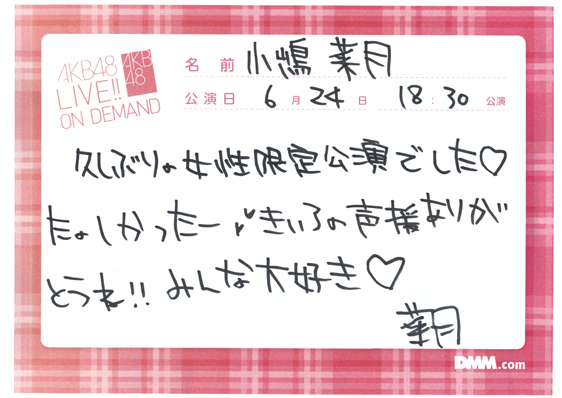 AKB48
LIVE!!
ON DEMAND
AKB
48
名前 小嶋 菜月
公演日 6月24日 18:30 公演
久しぶりの女性限定公演でした♡
たのしかったー♥きいろの声援ありが
とうね!! みんな大好き♡
菜月
DMM.com